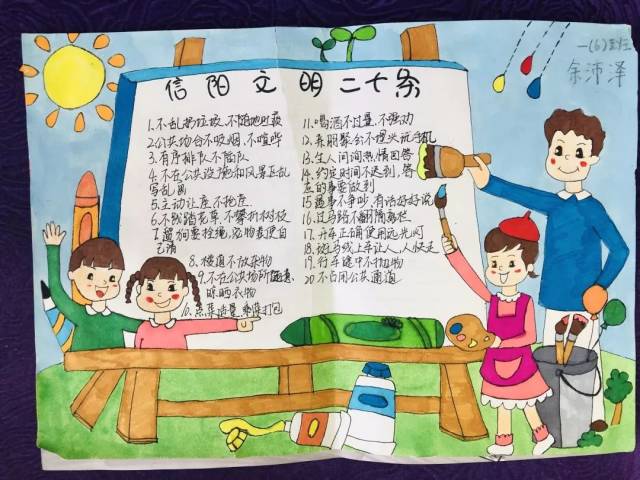 信阳文明二十条
一(6)班
余沛泽
1.不乱扔垃圾,不随地吐痰
2.公共场合不吸烟,不喧哗
3.有序排队不插队
4.不在公共设施和风景区乱
写乱画
5.主动让座不抢座
6.不践踏花草,不攀折树枝
7.遛狗要拴绳,宠物粪便自
己清
8.楼道不放杂物
9.不在公共场所随意
晾晒衣物
10.点菜适量,剩菜打包
11.喝酒不过量,不强劝
12.亲朋聚会不埋头玩手机
13.生人问询热情回答
14.约定时间不迟到,答
应的事要做到
15.遇事不争吵,有话好好说
16.过马路不翻隔离栏
17.开车正确使用远光灯
18.斑马线上车让人,人快走
19.行车途中不抛物
20.不占用公共通道